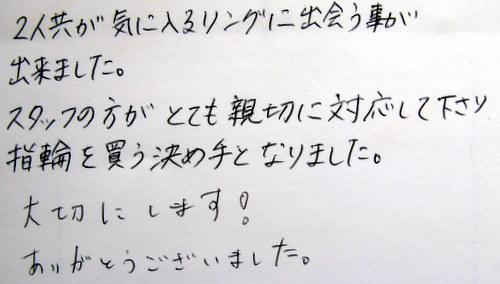 2人共が気に入るリングに出会う事が
出来ました。
スタッフの方がとても親切に対応して下さり
指輪を買う決め手となりました。
大切にします!
ありがとうございました。